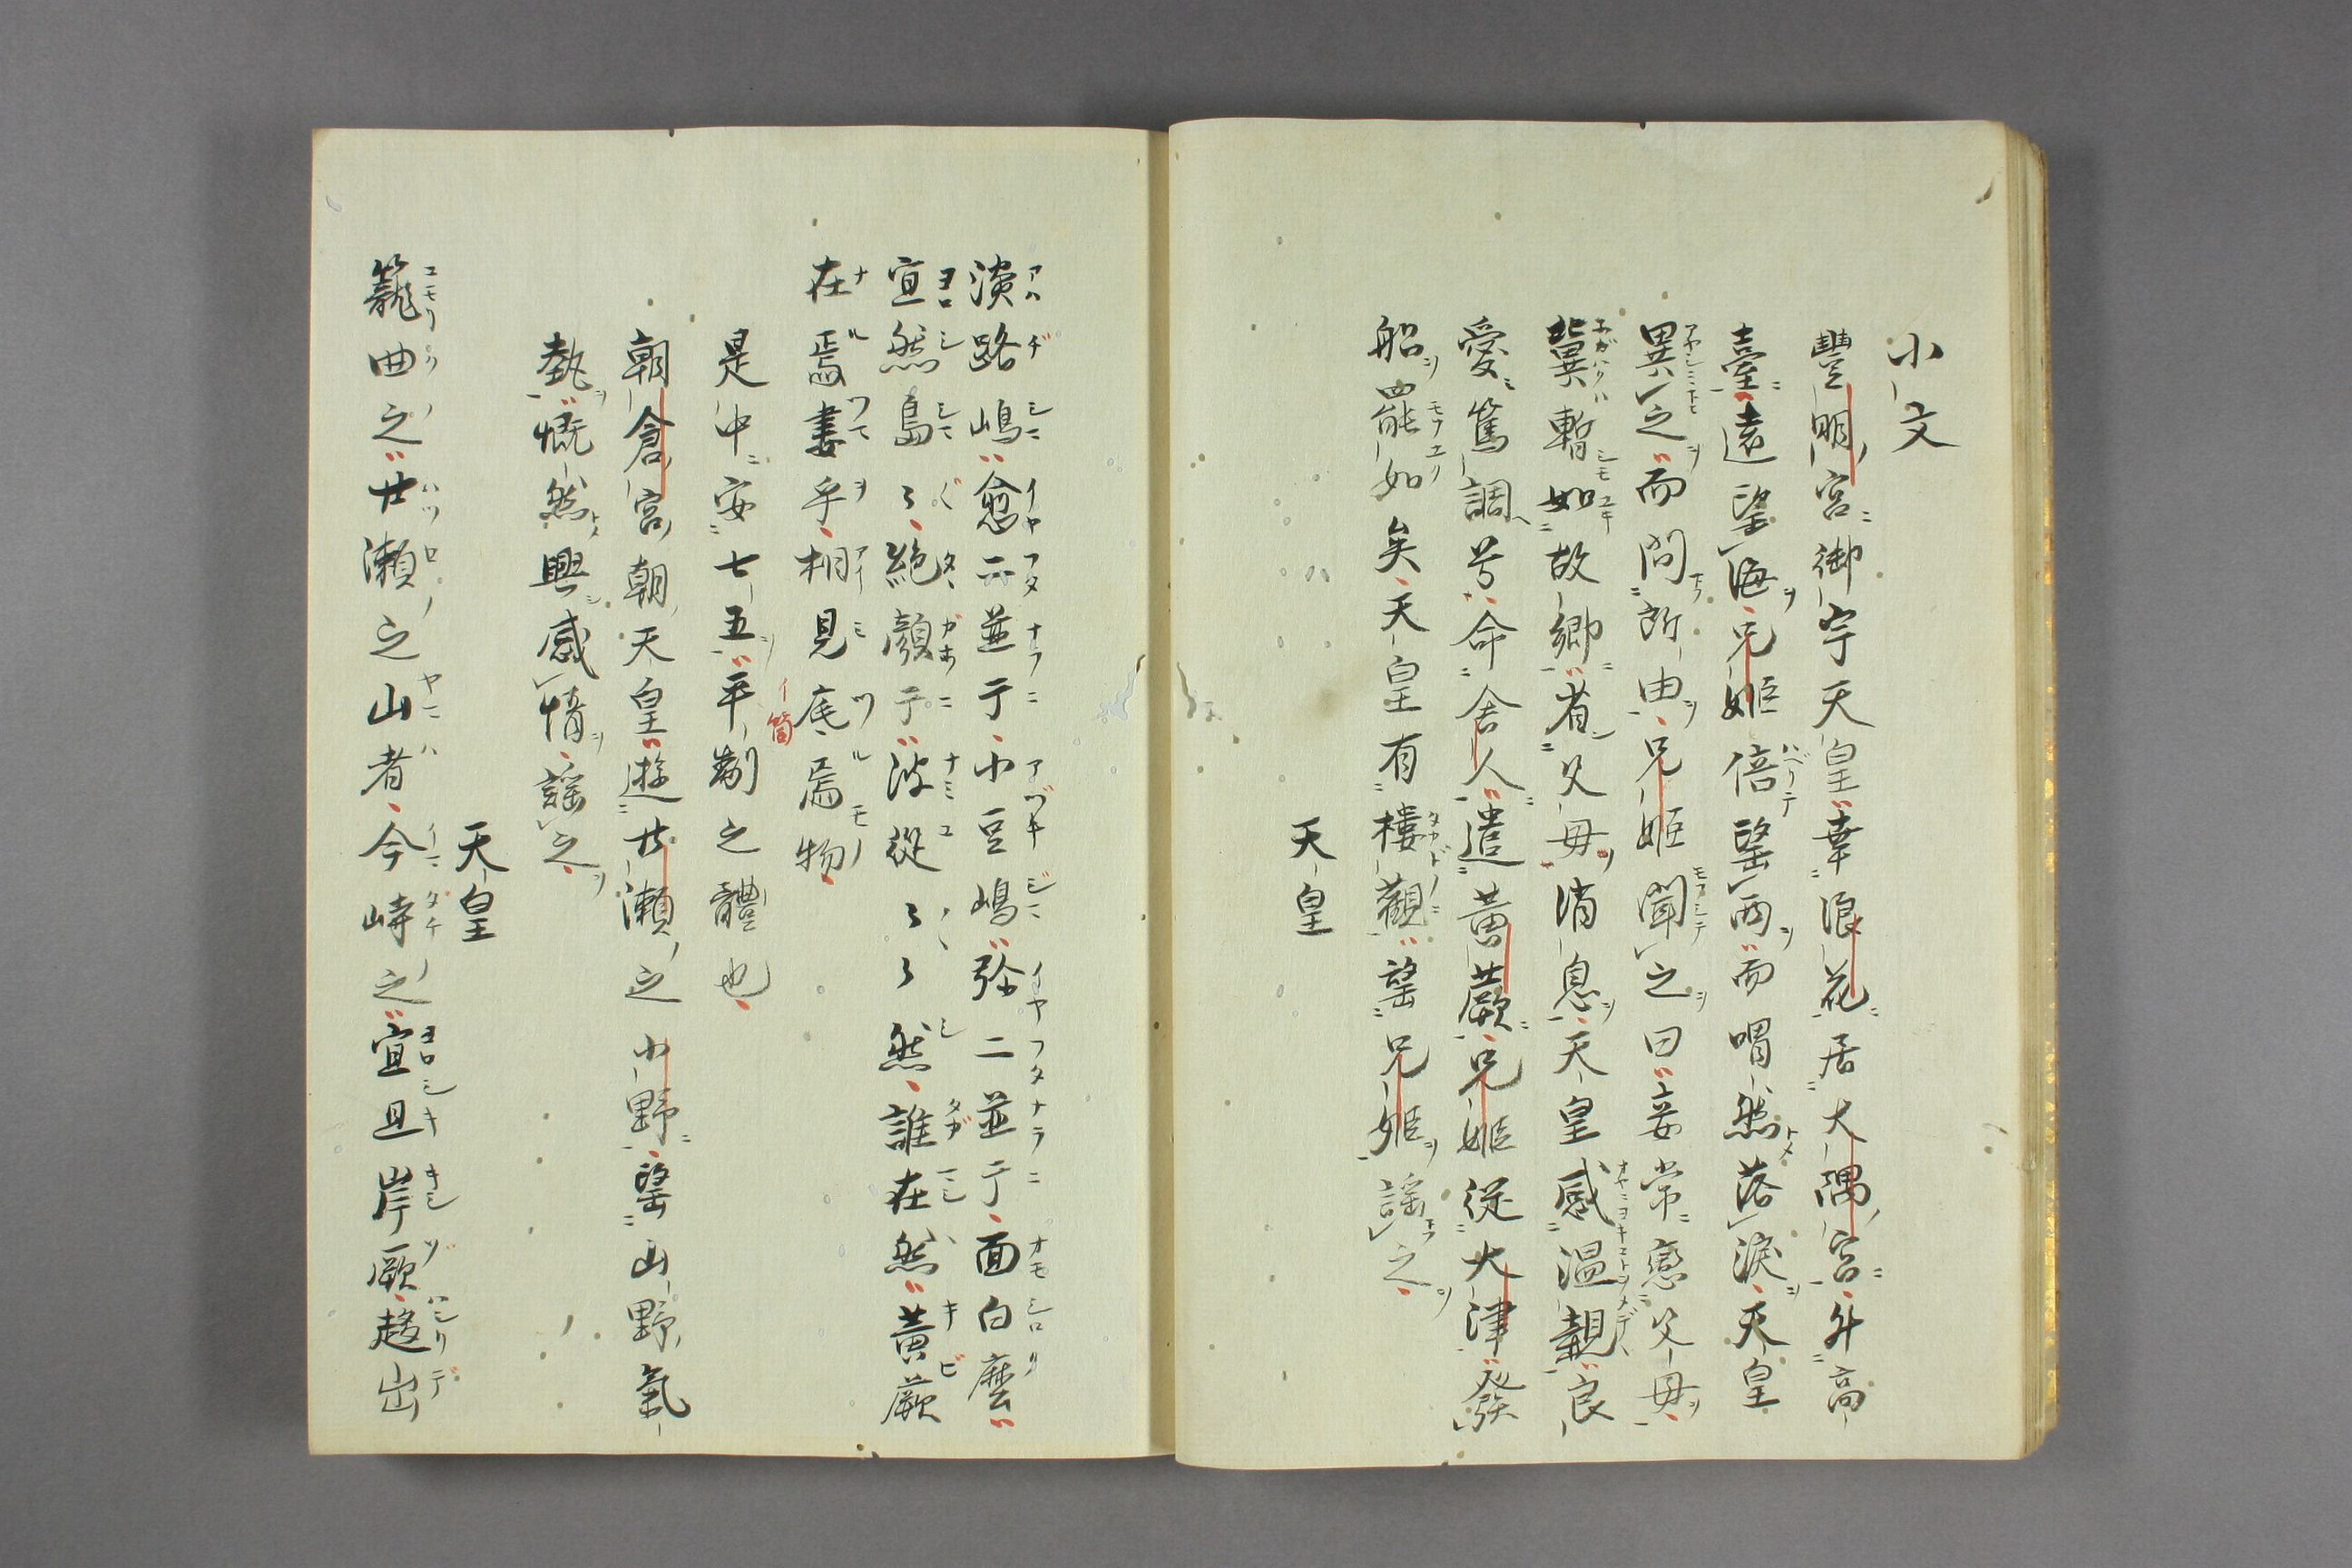 小文
豐明宮御宇天皇幸浪花居大隅宮外高
臺遠望海兄姬倍望西而喟然落淚天皇
異之而問所由兄姬聞之曰妾常戀父母
冀暫如故鄉省父母消息天皇感溫親良
愛篤調兮命舍人遣黃蕨兄姬従大津發
船罷如矣天皇有樓觀望兄姬謠之
天皇
淡路嶋愈二並于小豆嶋弥二並于面白麼
宜然島々絶顏于波從々々然誰在然黃蕨
在焉妻乎相見底焉物
是中安七五平制之體也
イ箇
朝倉宮朝天皇遊廿瀨之小野望山野氣
熱慨然興感情謠之
天皇
籠曲之廿瀨之山者今峙之宜且岸厥趍出